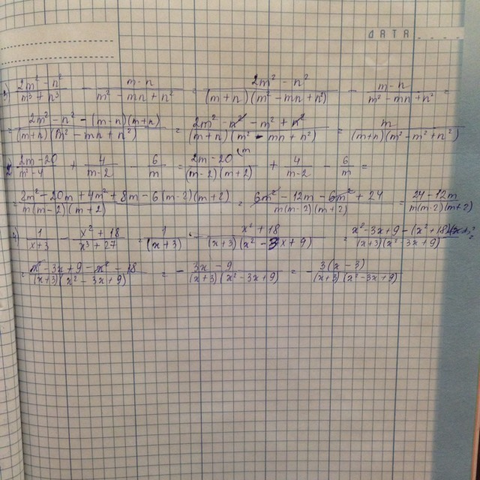 DATA
1) (2m² - n²)/(m³ + n³) - (m - n)/(m² - mn + n²) = (2m² - n²)/((m + n)(m² - mn + n²)) - (m - n)/(m² - mn + n²) =
= (2m² - n² - (m - n)(m + n))/((m + n)(m² - mn + n²)) = (2m² - n² - m² + n²)/((m + n)(m² - mn + n²)) = m/((m + n)(m² - m² + n²))
2) (2m - 20)/(m² - 4) + 4/(m - 2) - 6/m = (2m - 20)/((m - 2)(m + 2)) + 4/(m - 2) - 6/m =
= (2m² - 20m + 4m² + 8m - 6(m - 2)(m + 2))/(m(m - 2)(m + 2)) = (6m² - 12m - 6m² + 24)/(m(m - 2)(m + 2)) = (24 - 12m)/(m(m - 2)(m + 2))
1/(x + 3) - (x² + 18)/(x³ + 27) = 1/(x + 3) - (x² + 18)/((x + 3)(x² - 3x + 9)) = (x² - 3x + 9 - (x² + 18))/((x + 3)(x² - 3x + 9)) =
= (x² - 3x + 9 - x² - 18)/((x + 3)(x² - 3x + 9)) = - (3x - 9)/((x + 3)(x² - 3x + 9)) = - (3(x - 3))/((x + 3)(x² - 3x + 9))